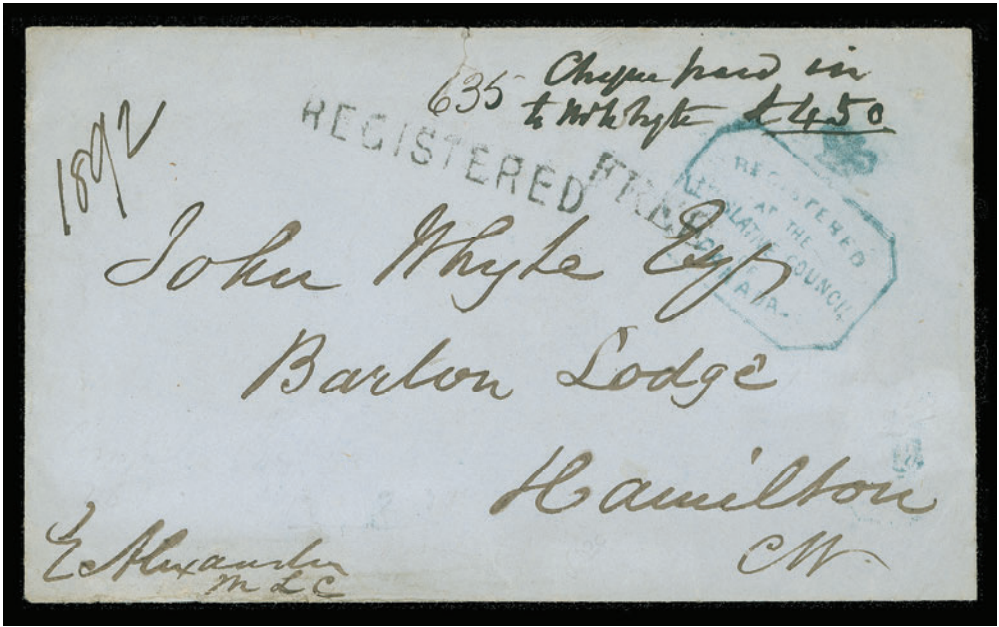 635 Cheque paid in
to Mr Whyte £450
1892
REGISTERED
FREE
REGISTERED
AT THE
LEGISLATIVE COUNCIL
CANADA.
John Whyte Esq
Barton Lodge
Hamilton
CW.
E Alexander
M L C